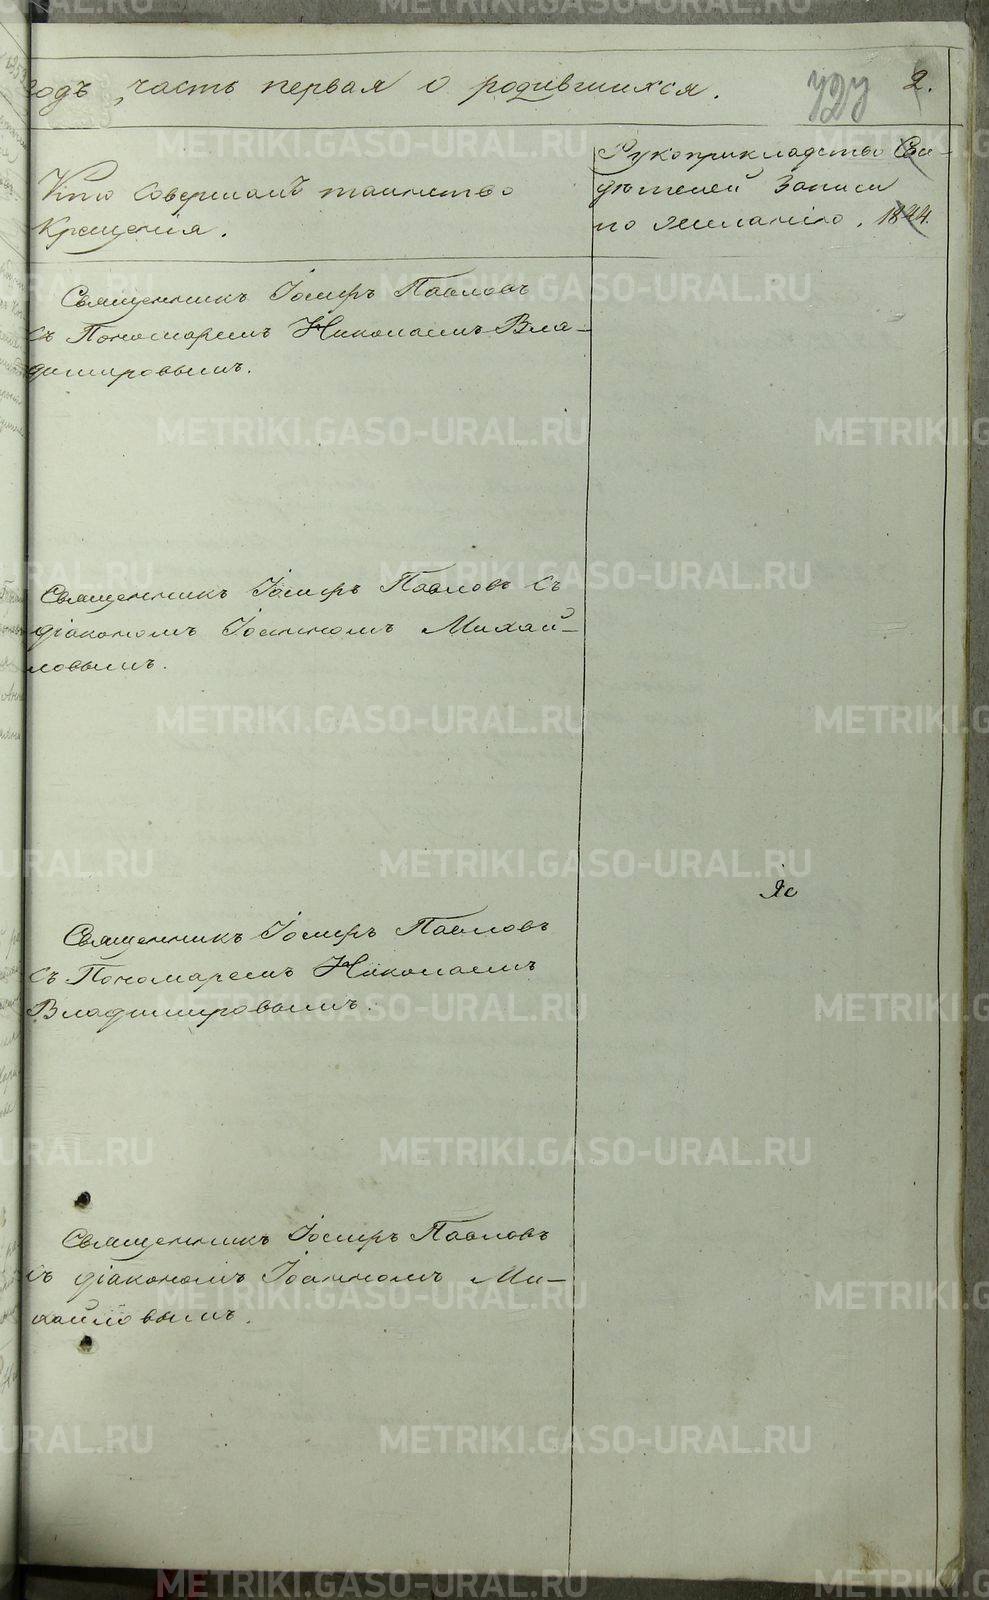 годъ, часть первая о родившихся. 727 2.
Кто совершалъ таинство
Крещенія.
Рукоприкладство Сви-
дѣтелей записи
по желанію. 1844.
Священникъ Іосифъ Павловъ
съ Пономаремъ Николаемъ Вла-
димировымъ.
Священникъ Іосифъ Павловъ съ
діакономъ Іоанномъ Михай-
ловымъ.
Священникъ Іосифъ Павловъ
съ Пономаремъ Николаемъ
Владимировымъ.
Священникъ Іосифъ Павловъ
съ діакономъ Іоанномъ Ми-
хайловымъ.
METRIKI.GASO-URAL.RU